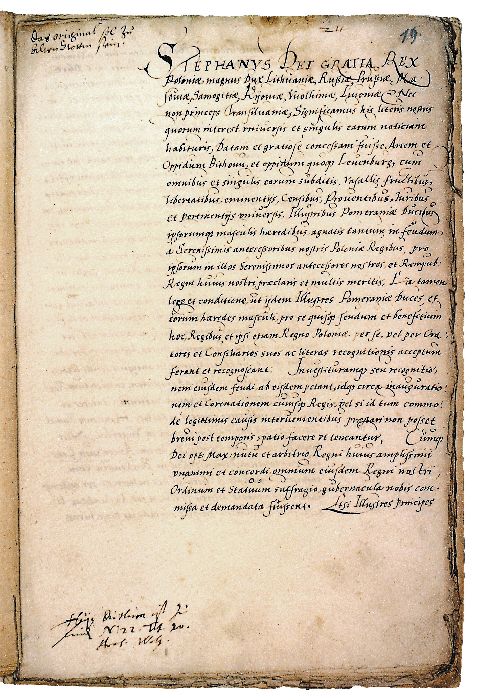 Das original sol zu
24
19
STEPHANVS DEI GRATIA REX
Poloniæ magnus Dux Lithuaniæ, Rußiæ Prußiæ, Ma
souiæ, Samogitiæ, Kÿouiæ, Vuolhiniæ, Liuoniæ, Nec
non princeps Transiluaniæ, Significamus his literis nostris
quorum interest vniuersis et singulis earum noticiam
habituris, Datam et gratiosè concessam fuisse, Arcem et
Oppidum Buthouu, et oppidum quoq Leuenburg, cum
omnibus et singulis eorum subditis, Vasallis, fructibus,
libertatibus, eminentijs, Censibus, Prouentibus, Iuribus
et pertinentijs vniuersis, Illustribus Pomeraniæ Ducibus
ipsorumq masculis hæredibus agnatis tantum in feudum
à Serenissimis antecessoribus nostris Poloniæ Regibus, pro
ipsorum in illos Serenissimos antecessores nostros, et Rempub
Regni huius nostri præclaris et multis meritis, Ea tamen
lege et conditione, vt ijdem Illustres Pomeraniæ Duces, et
eorum hæredes masculi, pro se quisq feudum et beneficium
hoc, Regibus et ipsi etiam Regno Poloniæ per se, vel per Ora
tores et Consiliarios suos ac literas recognitionis acceptum
ferant et recognoscant. Inuestituramq seu recognitio
nem eiusdem feudi ab eisdem petant, idq circa inauguratio
nem et Coronationem cuiusq Regis, vel si id tum commo
dè legitimis causis interuenientibus præstari non posset
breui post temporis spatio facere id teneantur, Cumq
Dei opt: Max: nutu et arbitrio, Regni huius amplissimi
vnanimi et concordi omnium eiusdem Regni nostri
Ordinum et Statuum suffragio, gubernacula nobis com
missa et demandata fuissent. Ijsdē Illustres principes